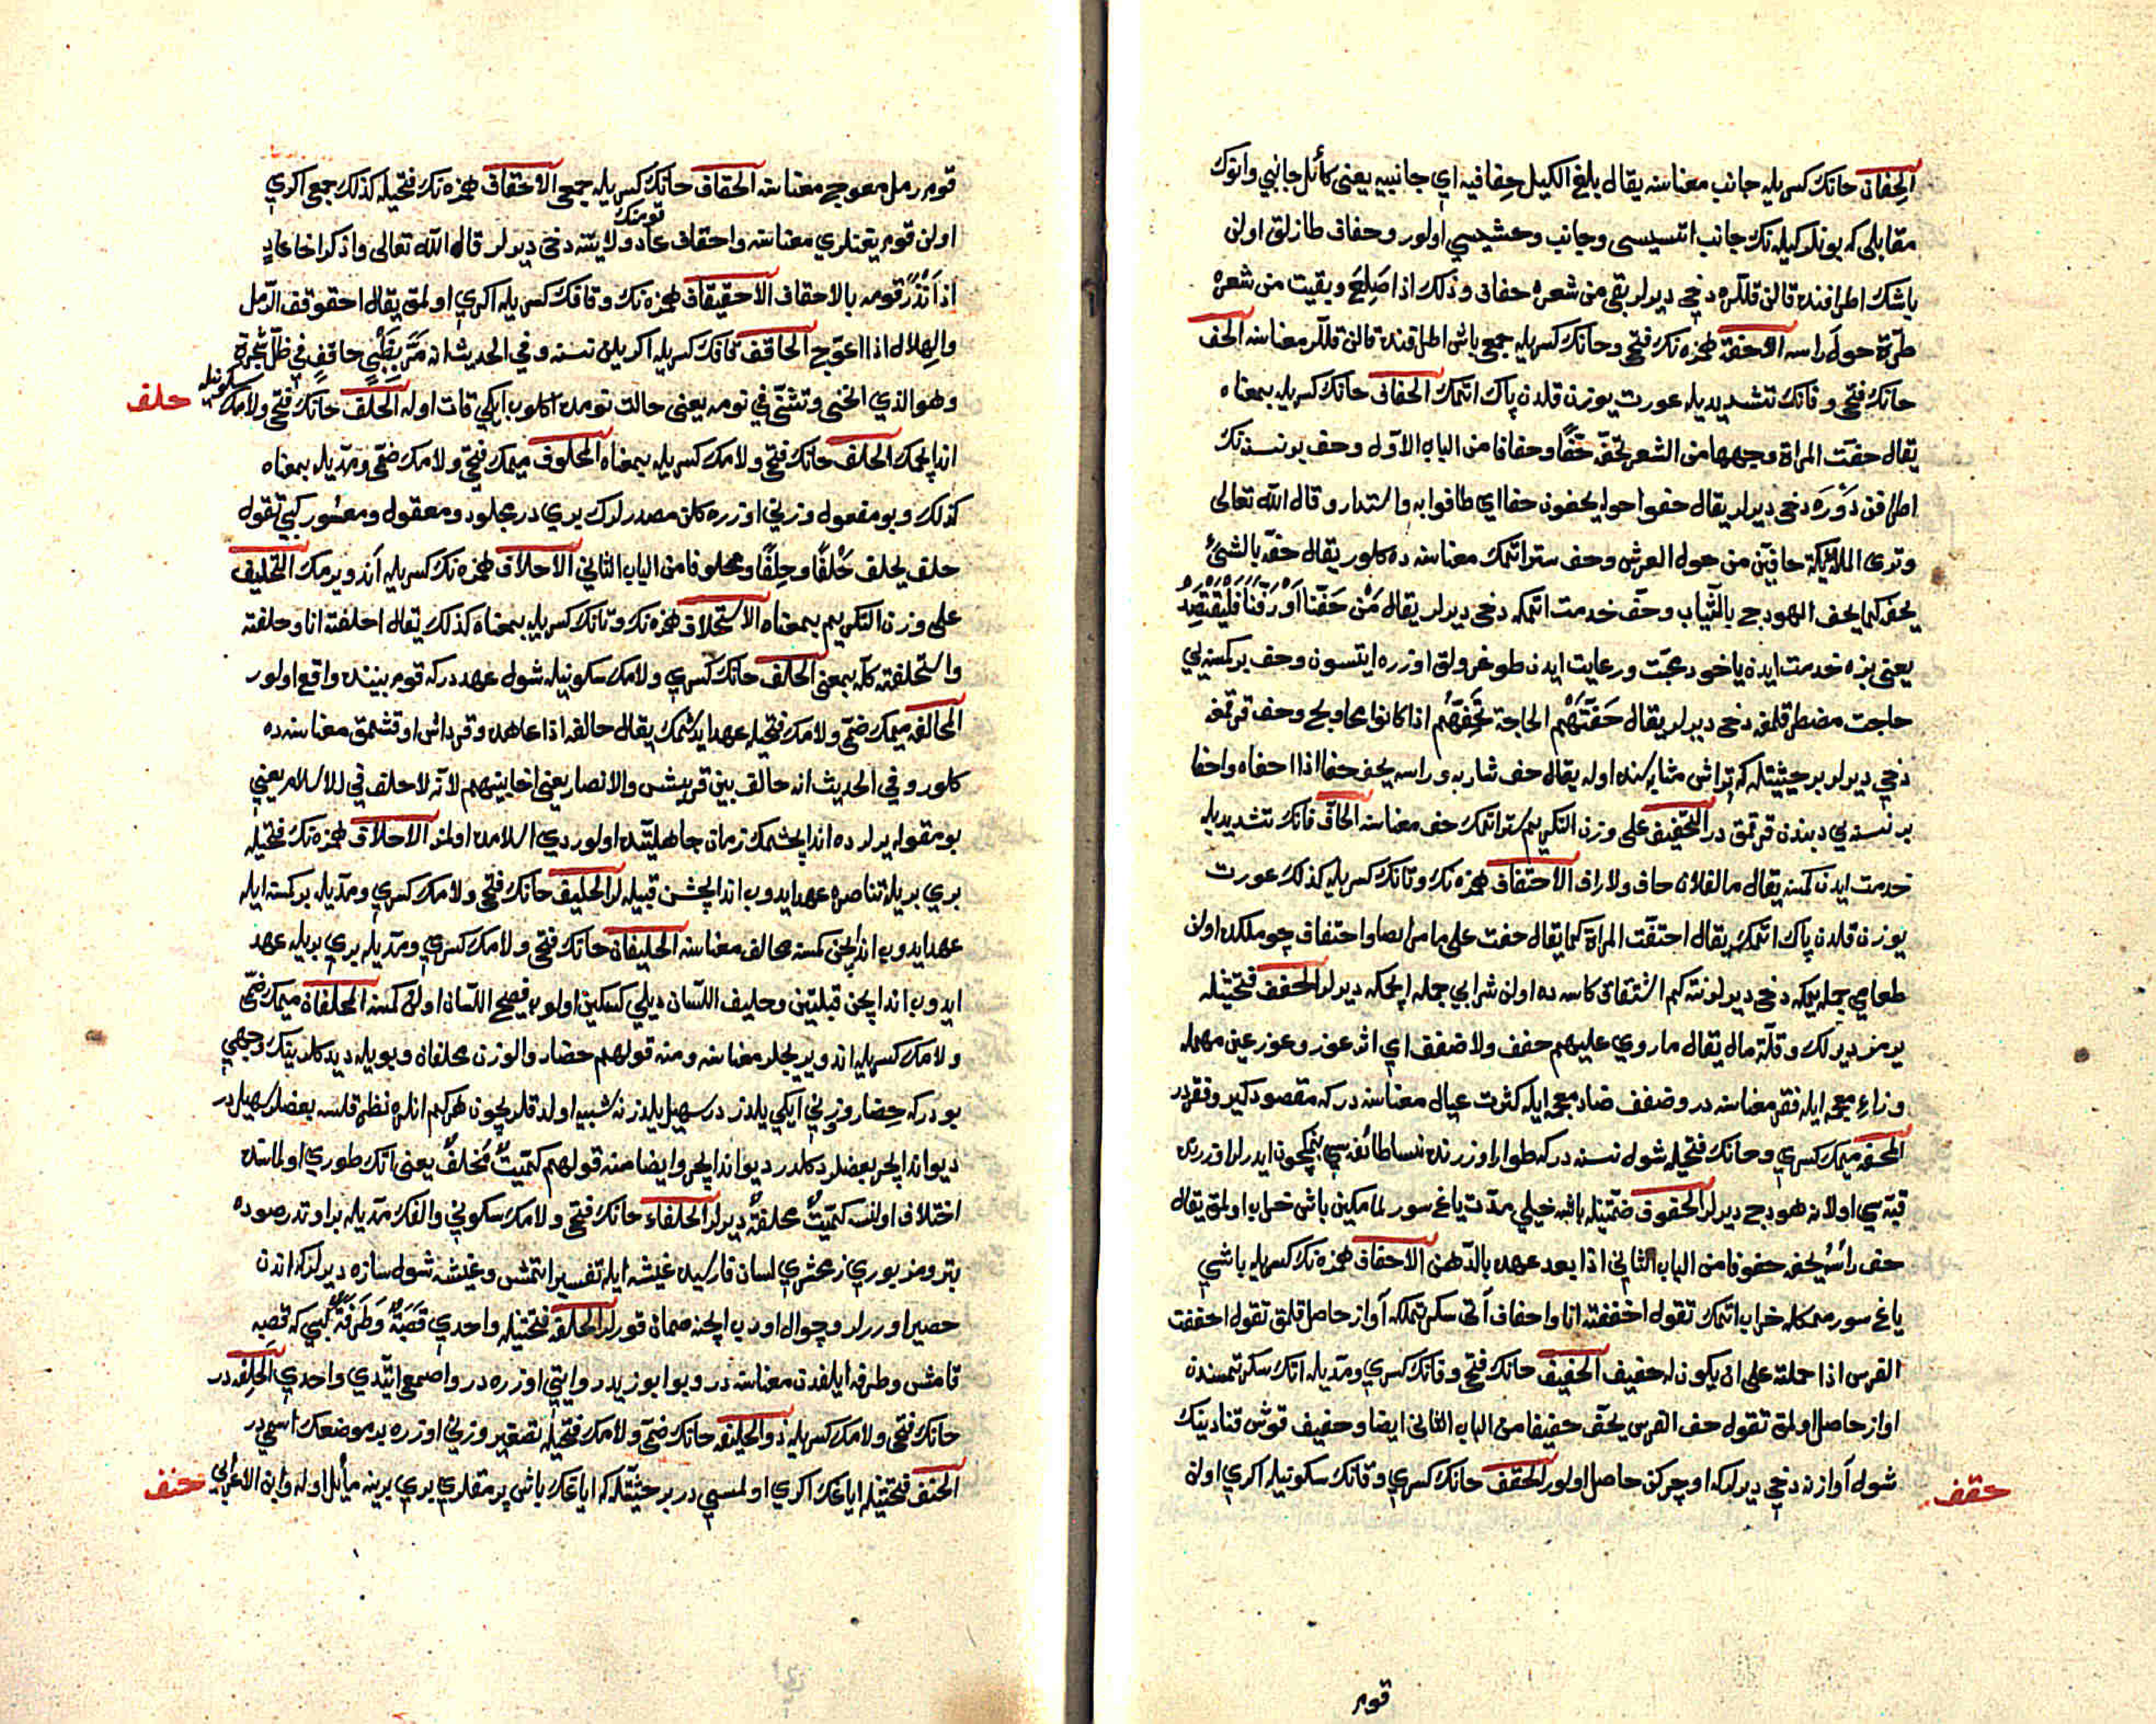 الحفاف حانك كسريله جانب معناسنه يقال بلغ الكيل حفافيه اي جانبيه يعنى كأئل جانبي وانوك
مقابلى كه بونلر كيله نك جانب انسيسى وجانب وحشيسي اولور وحفاف طازلق اولن
باشك اطرافنده قالن قللره دخي ديرلر بقى من شعره حفاف وذلك اذا صلع وبقيت من شعره
طرة حول راسه الاحفة همزه نك فتحى وحانك كسريله جمعى باش اطرافنده قالن قللر معناسنه الحف
حانك فتحى وفانك تشديديله عورت يوزن قلدن پاك اتمك الحفاف حانك كسريله بمعناه
يقال حفت المراة وجهها من الشعر تحفه حفا وحفافا من الباب الاول وحف بر نسنه نك
اطرافن دوره دخى ديرلر يقال حفوا حوله يحفون حفا اي طافوا به واستدار وقال الله تعالى
وترى الملائكة حافين من حول العرش وحف ستر اتمك معناسنه ده كلور يقال حفه بالشئ
يحفه كما يحف الهودج بالثياب وحف خدمت اتمكه دخى ديرلر يقال من حفنا او رفنا فليقتصد
يعنى بزه خدمت ايدن ياخود محبت ورعايت ايدن طوغرولق اوزره ايتسون وحف بر كمسنه يي
حاجت مضطر قلمغه دخى ديرلر يقال حفتهم الحاجة تحفهم اذا كانوا محاويج وحف قرقمغه
دخي ديرلر بر حيثيتله كه تراش مثابه سنده اوله يقال حف شاربه وراسه يحف حفا اذا احفاه واحفا
بر نسنه يي دبندن قرقمق در التحفيف على وزن التكريم ستر اتمك حف معناسنه الحاف فانك تشديديله
خدمت ايدن كمسنه يقال ما لفلان حاف ولا راف الاحتفاف همزه نك وتانك كسريله كذلك عورت
يوزن قلدن پاك اتمك يقال احتفت المراة كما يقال حفت على ما مر ايضا واحتفاف چوملكده اولن
طعامي جمله ييمكه دخى ديرلر نته كيم اشتفاف كاسه ده اولن شرابي جمله ايچمكه ديرلر الحفف فتحتيله
يرمز ديرلك وقلة مال يقال ما روي عليهم حفف ولا ضفف اي اثر عوز وعوز عين مهمله
وزاء معجمه ايله فقر معناسنه در وضفف ضاد معجمه ايله كثرت عيال معناسنه در كه مقصودكير وفقر در
المحفه ميمك كسري وحانك فتحيله شول نسنه در كه طوار اوزرنده نسا طائفه سي بنمكچون ايدرلر اوزرنده
قبه سي اولانه هودج ديرلر الحفوف ضمتيله باشه خيلي مدت ياغ سورلمامكين باش خراب اولمق يقال
حف راسه يحف حفوفا من الباب الثاني اذا بعد عهده بالدهن الاحفاف همزه نك كسريله باشي
ياغ سورممكله خراب اتمك تقول احففته انا واحفاف آتى سكرتمكله آواز حاصل قلمق تقول احففت
الفرس اذا حملته على ان يكون له حفيف الحفيف حانك فتحى وفانك كسري ومديله اتك سكرتمسندن
اواز حاصل اولمق تقول حف الفرس يحف حفيفا من الباب الثانى ايضا وحفيف قوش قنادينك
شول آوازنه دخي ديرلر كه اوچركن حاصل اولور الحقف حانك كسري وقافك سكونيله اكري اولن
حقف
قوم
قوم رمل معوج معناسنه الحقاف حانك كسريله جمعى الاحقاف همزه نك فتحيله كذلك جمعى اكري
اولن قوم يتنلري معناسنه واحقاف عاد قومنك ولايتنه دخى ديرلر قال الله تعالى واذكر اخا عاد
اذ انذر قومه بالاحقاف الاحقيقاف همزه نك وقافك كسريله اكري اولمق يقال احقوقف الرمل
والهلال اذا اعوج الحاقف قافك كسريله اكريلن نسنه وفي الحديث انه مر بظبي حاقف في ظل شجرة
وهو الذي انحنى وتثنى في نومه يعنى حالت نومده اكلوب ايكي قات اوله الحلف حانك فتحى ولامك سكونيله
حلف
اند ايچمك الحلف حانك فتحى ولامك كسريله بمعناه المحلوف ميمك فتحى ولامك ضمى ومديله بمعناه
كذلك وبو مفعول وزنى اوزره كلن مصدرلرك بري در مجلود ومعقول ومعسور كبي تقول
حلف يحلف حلفا وحلفا ومحلوفا من الباب الثاني الاحلاف همزه نك كسريله اند ويرمك التحليف
على وزن التكريم بمعناه الاستحلاف همزه نك وتانك كسريله بمعناه كذلك يقال احلفته انا وحلفته
واستحلفته كله بمعنى الحلف حانك كسري ولامك سكونيله شول عهد در كه قوم بيننده واقع اولور
المحالفه ميمك ضمى ولامك فتحيله عهد ايدشمك يقال حالفه اذا عاهده وقرداش اوقشمق معناسنه ده
كلور وفي الحديث انه حالف بين قريش والانصار يعنى اخا بينهم لانه لا حلف في الاسلام يعني
بو مقوله يرلرده اند ايچشمك زمان جاهليتده اولوردي اسلامده اولمز الاحلاف همزه نك فتحيله
بري بريله تناصره عهد ايدوب اند ايچشن قبيله لر الحليف حانك فتحى ولامك كسري ومديله بر كمسنه ايله
عهد ايدوب اند ايچن كمسنه محالف معناسنه الحليفان حانك فتحى ولامك كسري ومديله بري بريله عهد
ايدوب اند ايچن قبلتين وحليف اللسان ديلي كسكين اولوب فصيح اللسان اولن كمسنه المحلفان ميمك ضمى
ولامك كسريله اند ويريجلر معناسنه ومنه قولهم حضار والوزن محلفان وبويله ديدكلرينك وجهي
بودر كه حضار وزني ايكي يلدز در سهيل يلدزنه شبيه اولدقلريچون هركيم انلره نظر قلسه بعضلر سهيلدر
ديو اند ايچر بعضلر دكلدر ديو اند ايچر وايضا منه قولهم كميت محلف يعنى اتك طوري اولماسنده
اختلاف اولنسه كميت محلفة ديرلر الحلفاء حانك فتحى ولامك سكوني والفك مديله بر اوتدر صوده
بتر ومزبوري زمخشري لسان فارسيده غيشه ايله تفسير اتمش وغيشه شول سازه ديرلر كه اندن
حصير اورر لر وچوال اورب ايچنه صمان قورلر الحلفه فتحتيله واحدي قصبة وطرفة كبي كه قصبه
قامش وطرفه ايلغدن معناسنه در وبو ابو زيد روايتي اوزره در واصمعي ايتدي واحدي الحلفه در
حانك فتحى ولامك كسريله ذو الحليفه حانك ضمى ولامك فتحيله تصغير وزني اوزره بر موضعك اسمي در
الحنف فتحتيله اياغك اكري اولمسي در بر حيثيتله كه اياغك باش پرمقلري بري برينه مائل اوله وابن الاعرابي
حنف